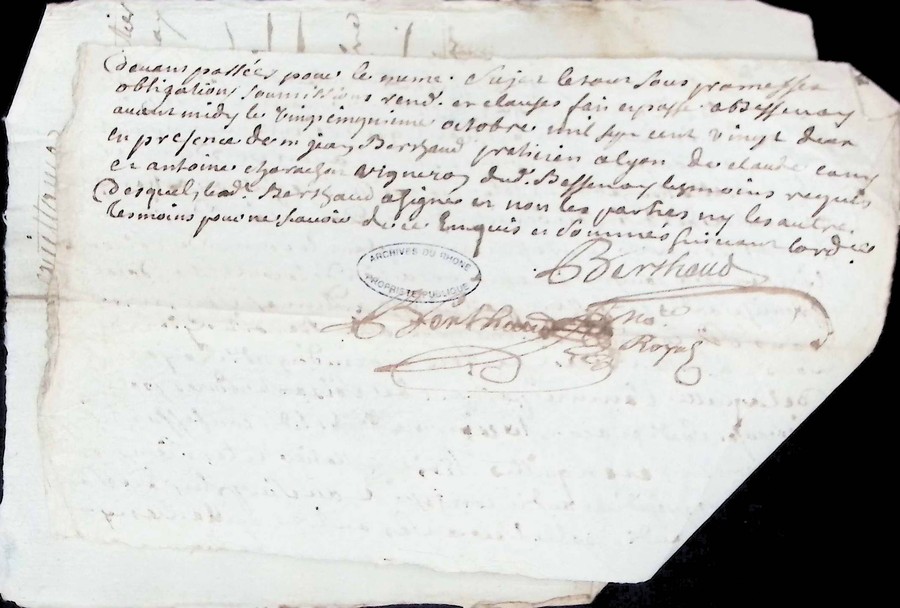 devant passées pour le meme sujet le tout sous promesses
obligations soumissions rend. et clauses fait et passé a Bessenay
avant midy le vingtcinquieme octobre mil sept cent vingt deux
en presence de m jean Berthaud praticien a lyon de claude
et antoine vigneron dud. Bessenay temoins requis
desquels led. Berthaud a signé et non les parties ny les autre
temoins pour ne savoir de ce enquis et sommés suivant lord.ce
Berthaud
ARCHIVES DU RHONE
PROPRIÉTÉ PUBLIQUE
Berthaud no.re
Royal